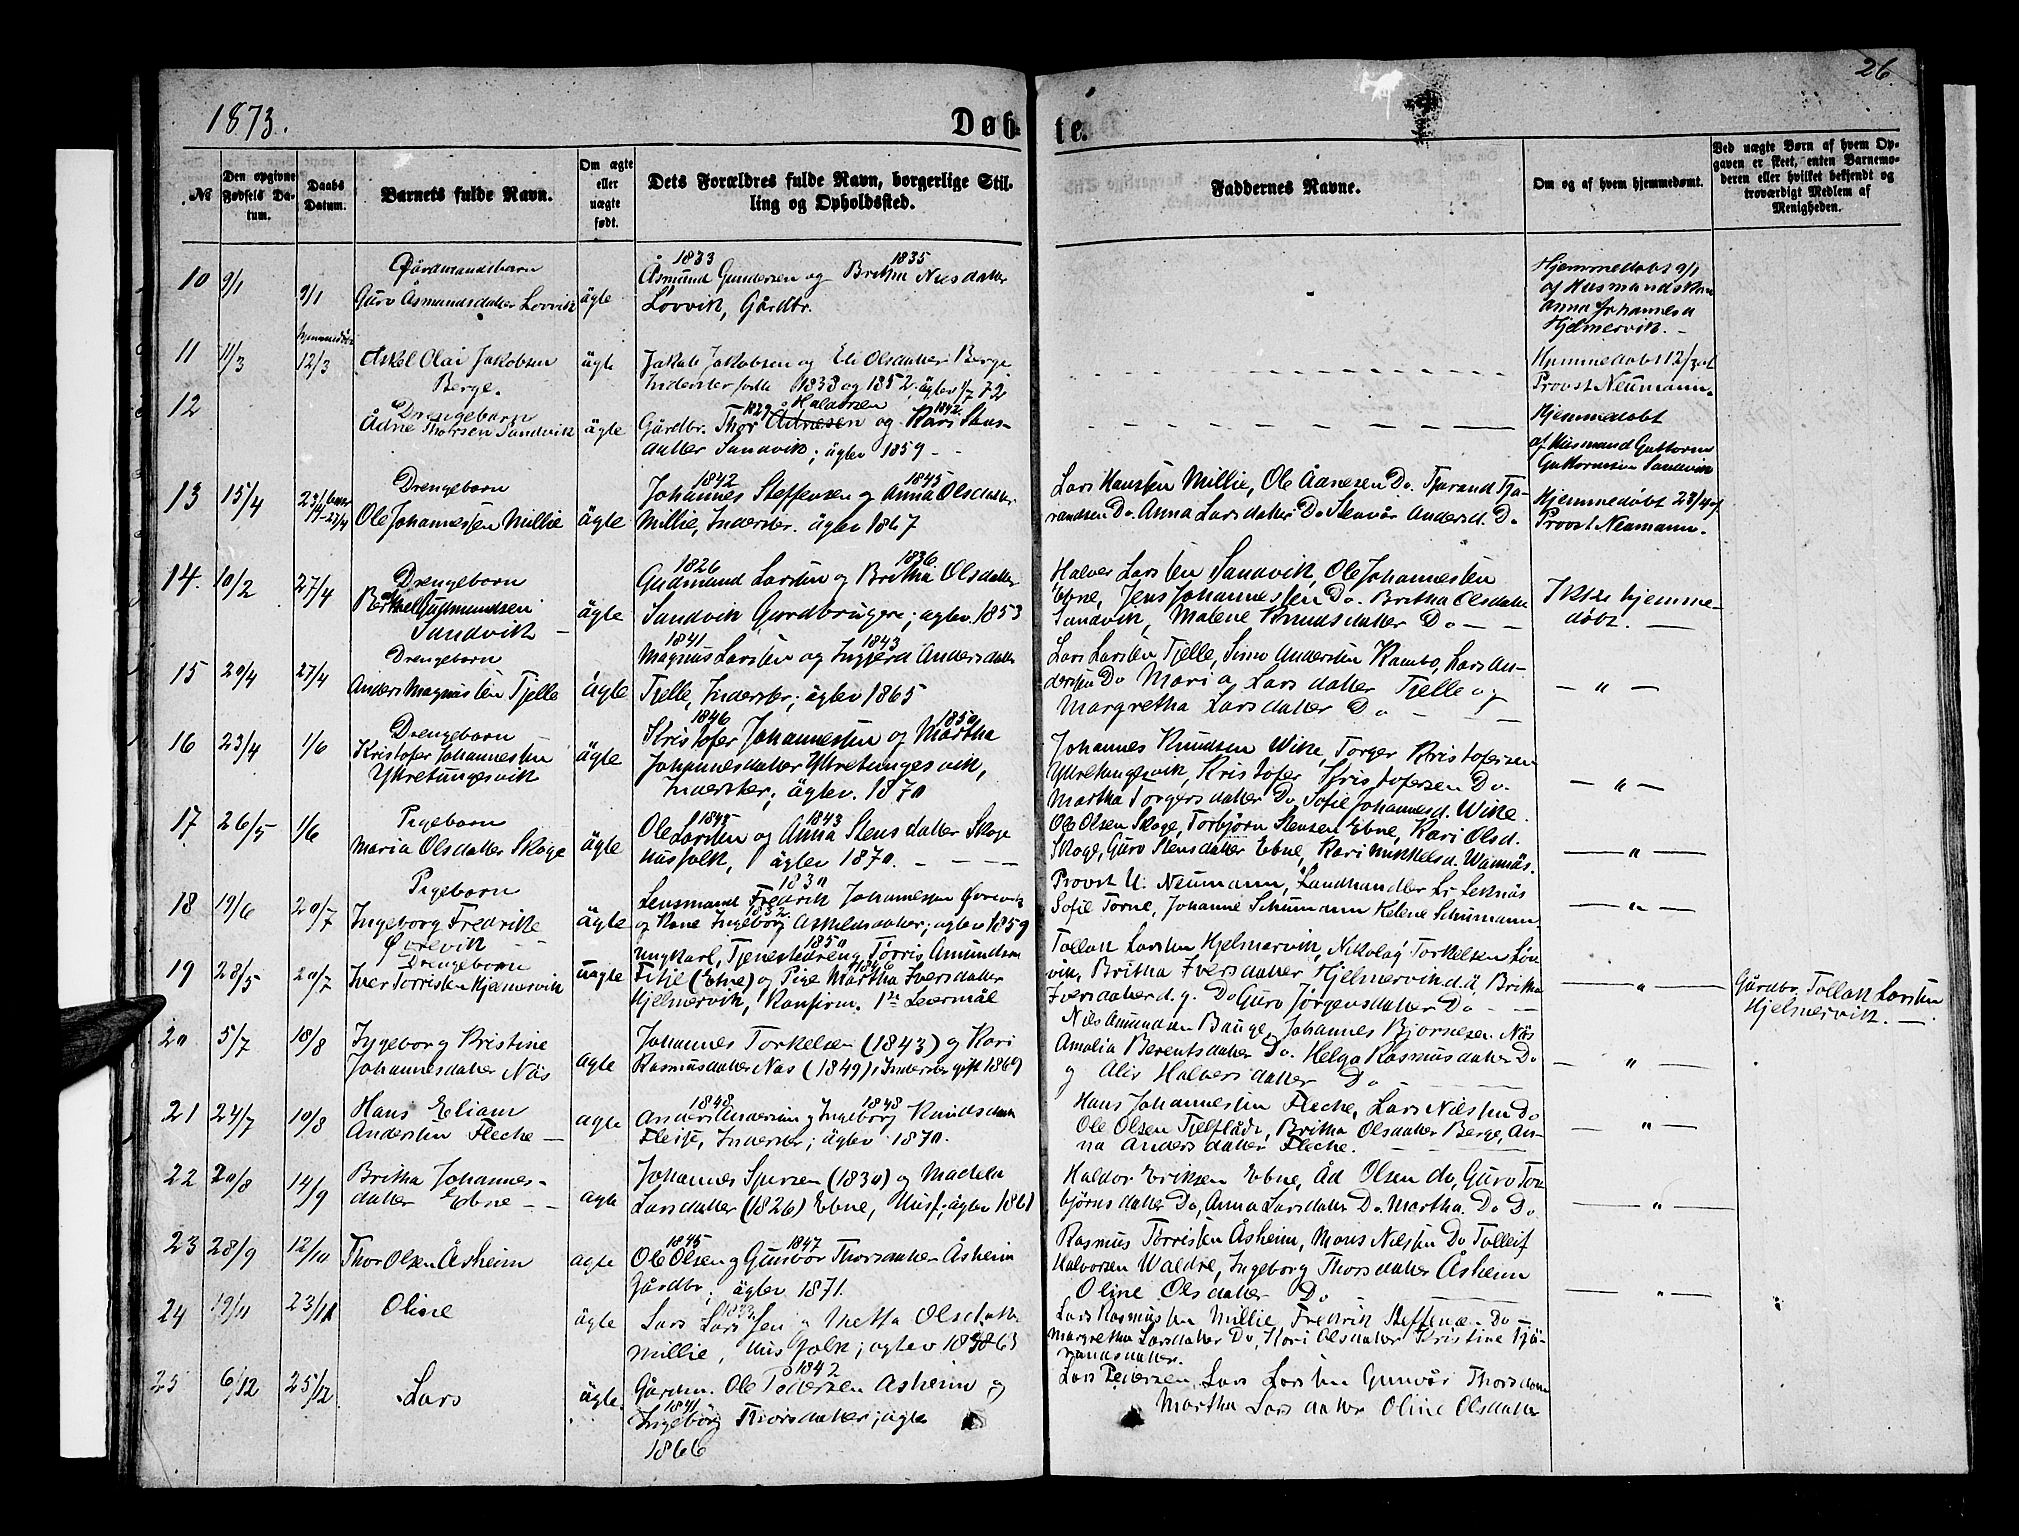 1873.
Døb-
te.
26
№
Den opgivne Fødsels Datum.
Daabs Datum.
Barnets fulde Navn.
Om ægte eller uægte født.
Dets Forældres fulde Navn, borgerlige Stilling og Opholdssted.
Faddernes Navne.
Om og af hvem hjemmedøbt.
Ved uægte Børn af hvem Opgaven er skeet, enten Barnemoderen eller hvilket bekjendt og troværdigt Medlem af Menigheden.
10 9/1 9/1
Guro Åsmundsdatter Lovvik ägte
1833 1835
Åsmund Gundersen og Britha Nilsdatter
Lovvik, Gårdbr.
Hjemmedøbt 9/1
af Husmandskone
Anna Johannesd
Hjelmervik. -
11 11/3 12/3
Askel Olai Jakobsen
Berge. ägte
Jakob Jakobsen og Eli Olsdatter Berge
Inderster fødte 1838 og 1852, ägtev 1/7 72
Hjemmedøbt 12/3 af
Provst Neumann.
12
Drengebarn
Ådne Thorsen Sandvik ägte
1829 Halvorsen 1842
Gårdbr. Thor Ådnesen og Kari Stens-
datter Sandvik; ägtev 1859 - -
Hjemmedøbt
af Husmand Guttorm
Guttormsen Sandvik
13 15/4
Drengebarn
Ole Johannessen Millie ägte
1842 1845
Johannes Steffensen og Anna Olsdatter
Millie, Inderster. ägtev 1867
Lars Hansen Millie, Ole Åsnesen Do. Tjerand Tje-
randsen Do. Anna Larsdatter Do Stenvör Andersd. Do
Hjemmedøbt 23/4 af
Provst Neumann.
14. 10/2 27/4
Drengebarn
Gudmundsen
Sandvik ägte
1826 1836
Gudmund Larsen og Britha Olsdatter
Sandvik Gardbrugere; ägtev. 1853
Halver Larsen Sandvik, Ole Johannessen
Ebne, Jens Johannessen Do. Britha Olsdatter
Sandvik, Malene Knudsdatter Do - -
Ikke hjemme-
døbt. -
15 20/4 27/4
Drengebarn
Anders Magnussen Tjelle ägte
1841 1843
Magnus Larsen og Ingjerd Andersdatter
Tjelle, Inderster; ägtev 1865
Lars Larsen Tjelle, Simo Andersen Kambo, Lars An-
dersen Do Maria Larsdatter Tjelle og
Margretha Larsdatter Do - -
- " -
16 23/4 1/6
Drengebarn
Kristofer Johannessen
Ytretungesvik ägte
1846 1850
Kristofer Johannessen og Martha
Johannesdatter Ytretungesvik,
Inderster; ägtev. 1870
Johannes Knudsen Wike, Torger Kristofersen
Ytretungesvik, Kristofer Kristofersen Do.
Martha Torgersdatter Do, Sofie Johannesd. Wike.
- " -
17 26/5 1/6
Pigebarn
Maria Olsdatter Skoge ägte
1845 1843
Ole Larsen og Anna Stensdatter Skoge
Husfolk, ägtev 1870. - - - -
Ole Olsen Skoge, Torbjörn Stensen Ebne, Kari Olsd.
Skoge, Guro Stensdatter Ebne, Kari Mikkelsd. Wannäs.
- " -
18 19/6 20/7
Pigebarn
Ingeborg Fredrikke
Øvrevik - - ägte
1830
Lensmand Fredrik Johannessen Øvrevik
1832
og Kone Ingeborg Askelsdatter; ägtev 1859
Provst U. Neumann, Landhandler Lr Leknäs
Sofie Torne, Johanne Schumann Helene Schumann
- " -
19 28/5 20/7
Drengebarn
Iver Torrissen Hjelmervik uägte
1850
Ungkarl, Tjenestedreng Torris Amundsen
1846
Fitje (Ebne) og Pige Martha Iversdatter
Hjelmervik, Konfirm. 1ste Leiermål
Tollak Larsen Hjelmervik, Nikolay Torkelsen Løn
vik, Britha Iversdatter Hjelmervik d.ä, Britha
Iversdatter d. y. Do Guro Jørgensdatter Do - -
- " -
Gårdbr. Tollak Larsen
Hjelmervik. -
20 5/7 10/8
Ingeborg Kristine
Johannesdatter Näs ägte
Johannes Torkelsen (1843) og Kari
Rasmusdatter Näs (1849), Inderster gift 1869
Nils Amundsen Bauge, Johannes Bjørnesen Näs
Amalia Berentsdatter Do. Helga Rasmusdatter Do
og Alis Halversdatter Do - - -
- " -
21 24/7 10/8
Hans Eliam
Andersen Fleche - ägte
1848 1848
Anders Andersen og Ingeborg Knudsdatter
Fleche, Inderster; ägtev. 1870.
Hans Johannessen Fleche, Lars Nilsen Do
Ole Olsen Tjelflåt, Britha Olsdatter Berge, An-
na Andersdatter Fleche. -
- " -
22 20/8 14/9
Britha Johannes-
datter Ebne - - ägte
Johannes Sjursen (1830) og Madela
Larsdatter (1826) Ebne, Husf; ägtev 1861
Haldor Eriksen Ebne, Åd Olsen do, Guro Tor
bjørnsdatter Do, Anna Larsdatter Do. Martha. Do Do.
- " -
23 28/9 12/10
Thor Olsen Åsheim ägte
1845 1847
Ole Olsen og Gunvor Thorsdatter Åsheim
Gårdbr, ägtev 1871.
Rasmus Torrissen Åsheim, Mons Nilssen Do Tolleif
Halvorsen Waldre, Ingeborg Thorsdatter Åsheim
Oline Olsdatter Do - - -
- " -
24 19/11 23/11
Oline ägte
1833
Lars Larssen og Metta Olsdatter
Millie, Husfolk; ägtev 1863
Lars Rasmussen Millie, Fredrik Steffensen Do -
Margretha Larsdatter Do, Kari Olsdatter Kristine Tjä-
randsdatter.
25 6/12 25/12
Lars ägte.
1842
Gårdm. Ole Pedersen Åsheim og
1841
Ingebörg Thorsdatter; ägte
1866
Lars Pedersen, Lars Larsen Gunvör Thorsdatter
Martha Larsdatter Oline Olsdatter